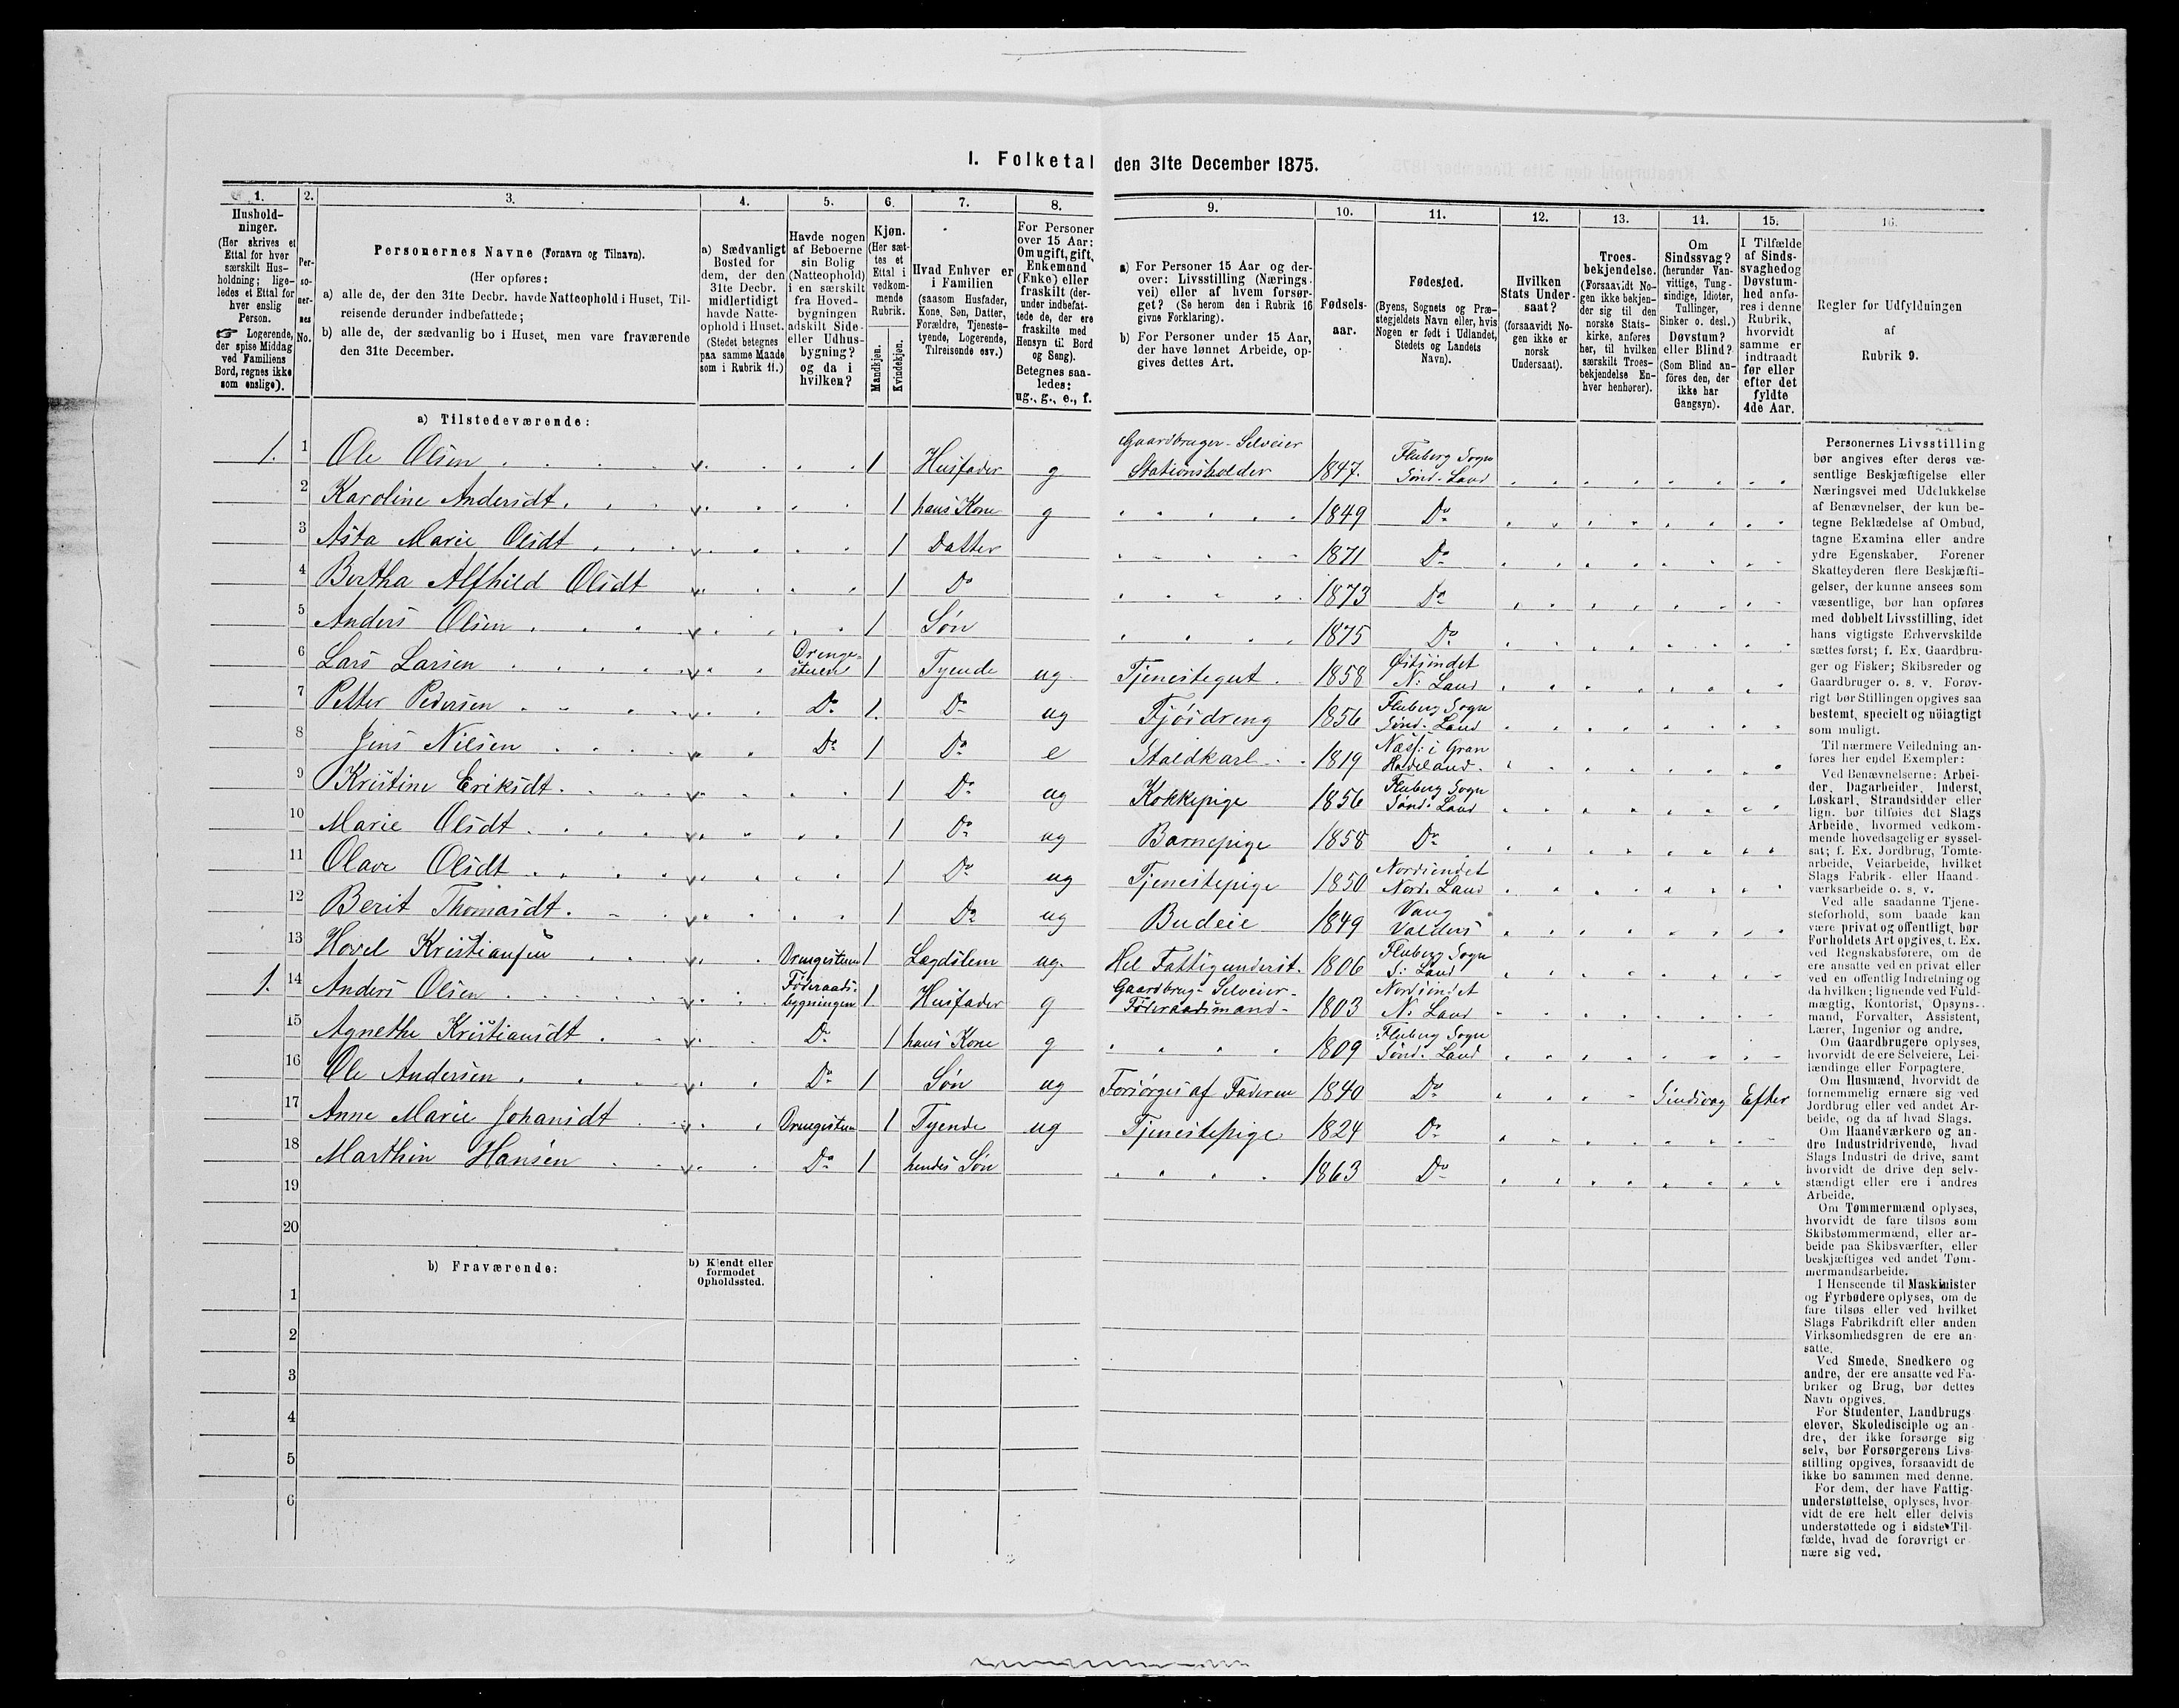 I. Folketal den 31te December 1875.
1.
Hushold-
ninger.
(Her skrives et
Ettal for hver
særskilt Hus-
holdning; lige-
ledes et Ettal for
hver enslig
Person.
☞ Logerende,
der spise Middag
ved Familiens
Bord, regnes ikke
som enslige).
2.
Per-
so-
ner-
nes
No.
3.
Personernes Navne (Fornavn og Tilnavn).
(Her opføres:
a) alle de, der den 31te Decbr. havde Natteophold i Huset, Til-
reisende derunder indbefattede;
b) alle de, der sædvanlig bo i Huset, men vare fraværende
den 31te December.
4.
a) Sædvanligt
Bosted for
dem, der den
31te Decbr.
midlertidigt
havde Natte-
ophold i Huset.
(Stedet betegnes
paa samme Maade
som i Rubrik 11.)
5.
Havde nogen
af Beboerne
sin Bolig
(Natteophold)
i en særskilt
fra Hoved-
bygningen
adskilt Side-
eller Udhus-
bygning?
og da i
hvilken?
6.
Kjøn.
(Her sæt-
tes et
Ettal i
vedkom-
mende
Rubrik.
Mandkjøn.
Kvindekjøn.
7.
Hvad Enhver er
i Familien
(saasom Husfader,
Kone, Søn, Datter,
Forældre, Tjeneste-
tyende, Logerende,
Tilreisende osv.)
8.
For Personer
over 15 Aar:
Om ugift, gift,
Enkemand
(Enke) eller
fraskilt (der-
under indbefat-
tede de, der ere
fraskilte med
Hensyn til Bord
og Seng).
Betegnes saa-
ledes:
ug., g., e., f.
9.
a) For Personer 15 Aar og der-
over: Livsstilling (Nærings-
vei) eller af hvem forsør-
get? (Se herom den i Rubrik 16
givne Forklaring).
b) For Personer under 15 Aar,
der have lønnet Arbeide, op-
gives dettes Art.
10.
Fødsels-
aar.
11.
Fødested.
(Byens, Sognets og Præ-
stegjeldets Navn eller, hvis
Nogen er født i Udlandet,
Stedets og Landets
Navn).
12.
Hvilken
Stats Under-
saat?
(forsaavidt No-
gen ikke er
norsk
Undersaat).
13.
Troes-
bekjendelse.
(Forsaavidt No-
gen ikke bekjen-
der sig til den
norske Stats-
kirke, anføres
her, til hvilken
særskilt Troes-
bekjendelse En-
hver henhører).
14.
Om
Sindssvag?
(herunder Van-
vittige, Tung-
sindige, Idioter,
Tullinger,
Sinker o. desl.)
Døvstum?
eller Blind?
(Som Blind an-
føres den, der
ikke har
Gangsyn).
15.
I Tilfælde
af Sinds-
svaghed og
Døvstum-
hed anfø-
res i denne
Rubrik,
hvorvidt
samme er
indtraadt
før eller
efter det
fyldte
4de Aar.
16.
Regler for Udfyldningen
af
Rubrik 9.
a) Tilstedeværende:
1. 1 Ole Olsen 1 Husfader g Gaardbruger-Selveier Stationsholder 1847. Fluberg Sogn Sønd. Land
2 Karoline Andersdt. 1 hans Kone g 1849 Do
3 Asta Marie Olsdt 1 Datter 1871 Do
4 Bertha Alfhild Olsdt 1 Do 1873 Do
5 Anders Olsen 1 Søn 1875 Do
6 Lars Larsen Drenge- stuen 1 Tyende ug Tjenestegut 1858 Østsindet N. Land
7 Petter Pedersen Do 1. Do ug Fjøsdreng 1856 Fluberg Sogn Sønd. Land
8 Jens Nilsen Do 1 Do e Staldkarl 1819 Næss i Gran Hadeland
9 Kristine Eriksdt. 1 Do ug Kokkepige 1856 Fluberg Sogn Sønd. Land
10 Marie Olsdt 1 Do ug Barnepige 1858 Do
11 Olave Olsdt 1 Do ug Tjenestepige 1850 Nordsindet Nord. Land
12 Berit Thomasdt. 1 Do ug Budeie 1849 Vang Valders
13 Hovel Kristiansen Drengestuen 1 Lægdslem ug. Hel Fattigunderst. 1806 Fluberg Sogn S: Land
1. 14 Anders Olsen Føderaads- bygningen 1 Husfader g Gaardbrug. Selveier- Føderaadsmand- 1803 Nordsindet N. Land
15 Agnethe Kristiansdt Do 1 hans Kone g 1809 Fluberg Sogn Sønd. Land
16 Ole Andersen Do 1 Søn ug Forsørges af Faderen 1840 Do Sindsvag Efter
17 Anne Marie Johansdt Drengestuen 1 Tyende ug Tjenestepige 1824 Do
18 Marthin Hansen Do 1 hendes Søn 1863 Do
19
20
b) Fraværende:
b) Kjendt eller
formodet
Opholdssted.
1
2
3
4
5
6
Personernes Livsstilling
bør angives efter deres væ-
sentlige Beskjæftigelse eller
Næringsvei med Udelukkelse
af Benævnelser, der kun be-
tegne Beklædelse af Ombud,
tagne Examina eller andre
ydre Egenskaber. Forener
Skatteyderen flere Beskjæfti-
gelser, der kunne ansees som
væsentlige, bør han opføres
med dobbelt Livsstilling, idet
hans vigtigste Erhvervskilde
sættes først; f. Ex. Gaardbru-
ger og Fisker; Skibsreder og
Gaardbruger o. s. v. Forøv-
rigt bør Stillingen opgives saa
bestemt, specielt og nöiagtigt
som muligt.
Til nærmere Veiledning an-
føres her endel Exempler:
Ved Benævnelserne: Arbei-
der, Dagarbeider, Inderst,
Løskarl, Strandsidder eller
lign. bør tilføies det Slags
Arbeide, hvormed vedkom-
mende hovedsagelig er syssel-
sat; f. Ex. Jordbrug, Tomte-
arbeide, Veiarbeide, hvilket
Slags Fabrik- eller Haand-
værksarbeide o. s. v.
Ved alle saadanne Tjene-
steforhold, som baade kan
være privat og offentligt, bør
Forholdets Art opgives, t. Ex.
ved Regnskabsførere, om de
ere ansatte ved en privat eller
ved en offentlig Indretning og
da hvilken; lignende ved Fuld-
mægtig, Kontorist, Opsyns-
mand, Forvalter, Assistent,
Lærer, Ingeniør og andre.
Om Gaardbrugere oplyses,
hvorvidt de ere Selveiere, Lei-
lændinge eller Forpagtere.
Om Husmænd, hvorvidt de
fornemmelig ernære sig ved
Jordbrug eller ved andet Ar-
beide, og da af hvad Slags.
Om Haandværkere og an-
dre Industridrivende, hvad
Slags Industri de drive, samt
hvorvidt de drive den selv-
stændigt eller ere i andres
Arbeide.
Om Tømmermænd oplyses,
hvorvidt de fare tilsøs som
Skibstømmermænd, eller ar-
beide paa Skibsværfter, eller
beskjæftiges ved andet Tøm-
mermandsarbeide.
I Henseende til Maskinister
og Fyrbødere oplyses, om de
fare tilsøs eller ved hvilket
Slags Fabrikdrift eller anden
Virksomhedsgren de ere an-
satte.
Ved Smede, Snedkere og
andre, der ere ansatte ved Fa-
briker og Brug, bør dettes
Navn opgives.
For Studenter, Landbrugs-
elever, Skoledisciple og an-
dre, der ikke forsørge sig
selv, bør Forsørgerens Livs-
stilling opgives, forsaavidt de
ikke bo sammen med denne.
For dem, der have Fattig-
understøttelse, oplyses, hvor-
vidt de ere helt eller delvis
understøttede og i sidste Til-
fælde, hvad de forøvrigt er-
nære sig ved.